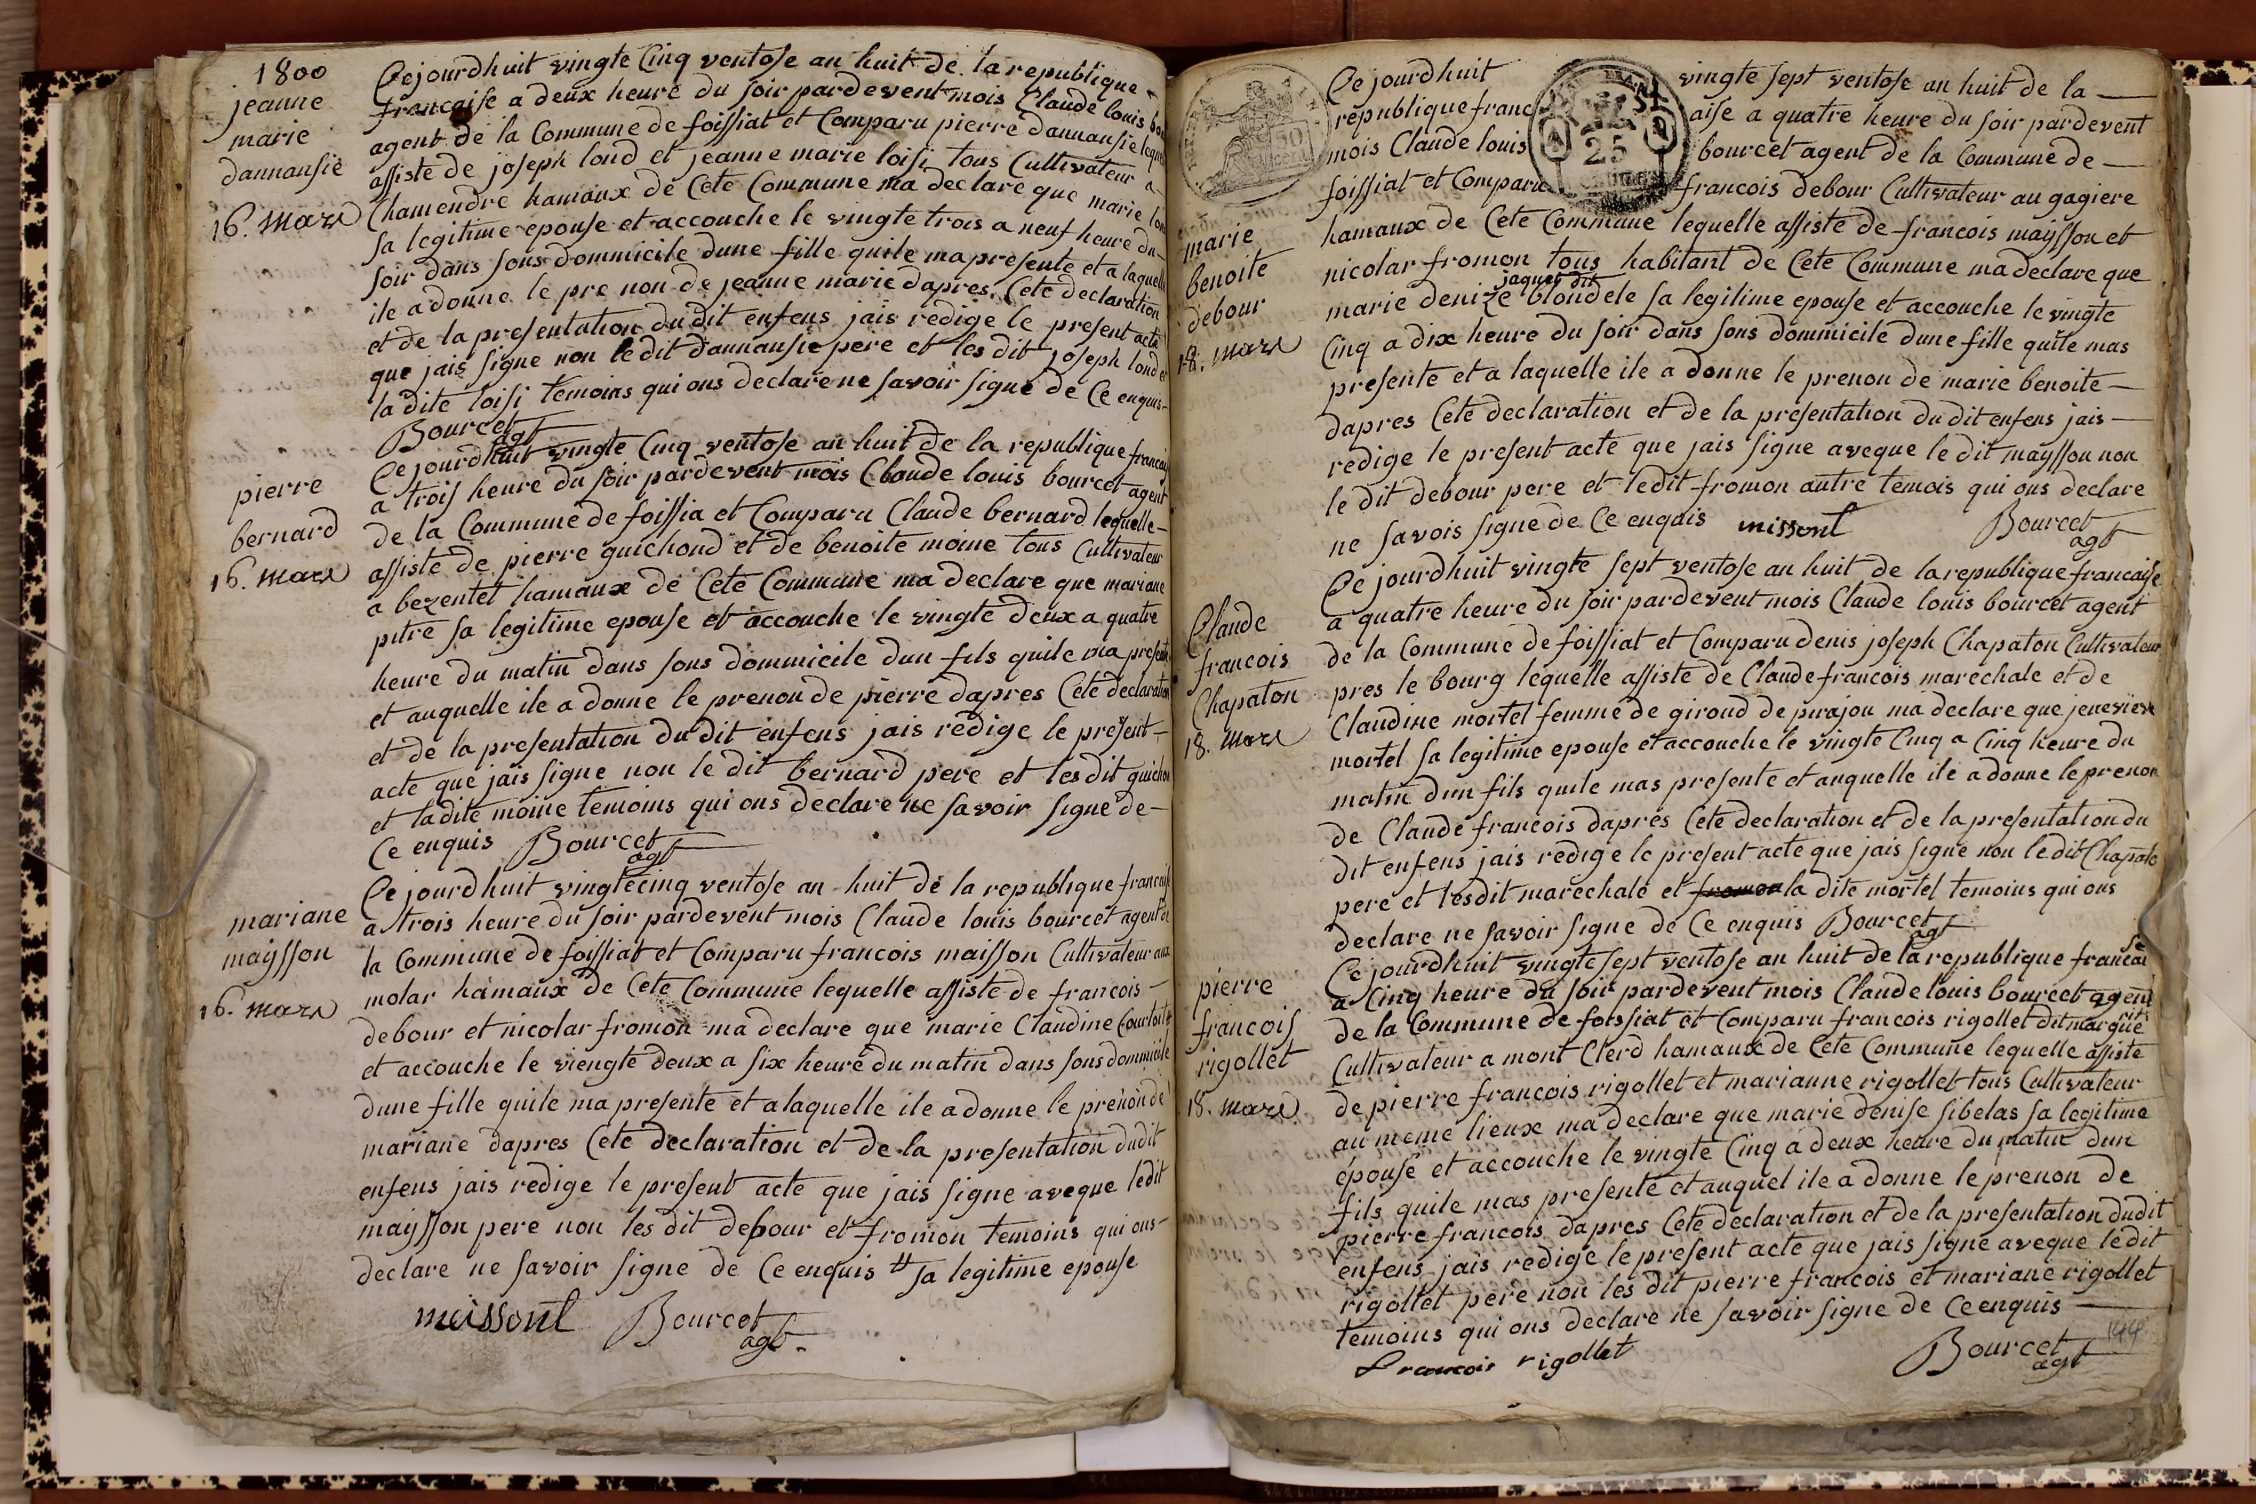 1800
jeanne
marie
dannansie
16. mars
Cejourdhuit vingte Cinq ventose an huit de la republique
francaise a deux heure du soir pardevent mois Claude louis
agent de la Commune de foissiat et Comparu pierre dannansie
assiste de joseph lond et jeanne marie loisi tous Cultivateur a
Chamendre hamaux de Cete Commune ma declare que marie lon
sa legitime epouse et accouche le vingte trois a neuf heure du
soir dans sons dommicile dune fille quile ma presente et a laquelle
ile a donne le pre non de jeanne marie dapres Cete declaration
et de la presentation du dit enfens jais redige le present acte
que jais signe non le dit dannansie pere et les dit joseph lond et
la dite loisi temoins qui ons declare ne savoir signe de Ce enquis
Bourcet
agt
pierre
bernard
16. mars
Ce jourdhuit vingte Cinq ventose an huit de la republique francaise
a trois heure du soir pardevent mois Claude louis bourcet agent
de la Commune de foissia et Comparu Claude bernard lequelle
assiste de pierre guichond et de benoite moine tous Cultivateur
a bezentet hamaux de Cete Commune ma declare que mariane
pitre sa legitime epouse et accouche le vingte deux a quatre
heure du matin dans sons dommicile dun fils quile ma presente
et auquelle ile a donne le prenon de pierre dapres Cete declaration
et de la presentation du dit enfens jais redige le present
acte que jais signe non le dit bernard pere et les dit guichon
et la dite moine temoins qui ons declare ne savoir signe de
Ce enquis Bourcet
agt
mariane
maysson
16. mars
Ce jourdhuit vingte cinq ventose an huit de la republique francaise
a trois heure du soir pardevent mois Claude louis bourcet agent de
la Commune de foissiat et Comparu francois maisson Cultivateur aux
molar hamaux de Cete Commune lequelle assiste de francois
debour et nicolar fromon ma declare que marie Claudine Courtoit #
et accouche le viengte deux a six heure du matin dans sons dommicile
dune fille quile ma presente et a laquelle ile a donne le prenon de
mariane dapres Cete declaration et de la presentation dudit
enfens jais redige le present acte que jais signe aveque ledit
maysson pere non les dit debour et fromon temoins qui ons
declare ne savoir signe de Ce enquis # sa legitime epouse
maissont Bourcet
agt
50
cent
25
51
marie
benoite
debour
18. mars
Ce jourdhuit vingte sept ventose an huit de la
republique francaise a quatre heure du soir pardevent
mois Claude louis bourcet agent de la Commune de
foissiat et Comparu francois debour Cultivateur au gagiere
hamaux de Cete Commune lequelle assiste de francois maysson et
nicolar fromon tous habitant de Cete Commune ma declare que
jaquet dit
marie denize blondele sa legitime epouse et accouche le vingte
Cinq a dix heure du soir dans sons dommicile dune fille quile mas
presente et a laquelle ile a donne le prenon de marie benoite
dapres Cete declaration et de la presentation du dit enfens jais
redige le present acte que jais signe aveque le dit maysson non
le dit debour pere et ledit fromon autre temois qui ons declare
ne savois signe de Ce enquis missont Bourcet
agt
Claude
francois
Chapaton
18. mars
Ce jourdhuit vingte sept ventose an huit de la republique francaise
a quatre heure du soir pardevent mois Claude louis bourcet agent
de la Commune de foissiat et Comparu denis joseph Chapaton Cultivateur
pres le bourg lequelle assiste de Claude francois marechale et de
Claudine mortel femme de giroud de pirajou ma declare que jenevieve
mortel sa legitime epouse et accouche le vingte Cinq a Cinq heure du
matin dun fils quile mas presente et auquelle ile a donne le prenon
de Claude francois dapres Cete declaration et de la presentation du
dit enfens jais redige le present acte que jais signe non le dit Chapato
pere et lesdit marechale et fromon la dite mortel temoins qui ons
declare ne savoir signe de Ce enquis Bourcet
agt
pierre
francois
rigollet
18. mars
Ce jourdhuit vingte sept ventose an huit de la republique francaise
a Cinq heure du soir pardevent mois Claude louis bourcet agent
de la Commune de foissiat et Comparu francois rigollet dit marguerit
Cultivateur a mont Clerd hamaux de Cete Commune lequelle assiste
de pierre francois rigollet et marianne rigollet tous Cultivateur
au meme lieux ma declare que marie denise sibelas sa legitime
epouse et accouche le vingte Cinq a deux heure du matin dun
fils quile mas presente et auquel ile a donne le prenon de
pierre francois dapres Cete declaration et de la presentation dudit
enfens jais redige le present acte que jais signe aveque le dit
rigollet pere non les dit pierre francois et mariane rigollet
temoins qui ons declare ne savoir signe de Ce enquis
francois rigollet Bourcet
agt
144